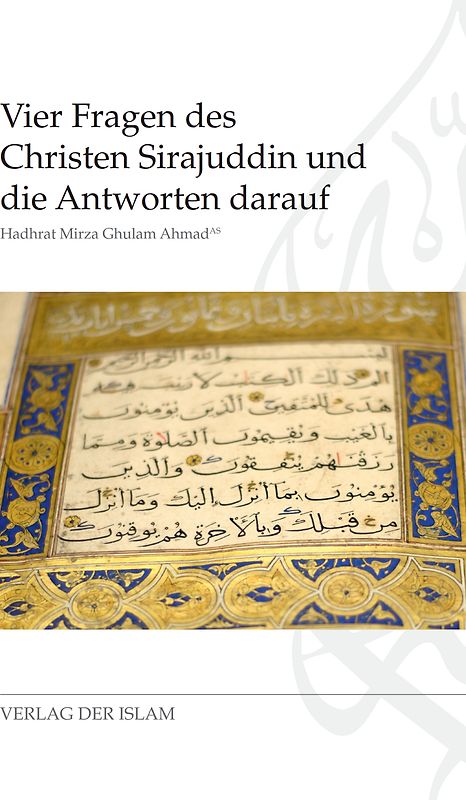 Vier Fragen des
Christen Sirajuddin und
die Antworten darauf
Hadhrat Mirza Ghulam Ahmadᴬˢ
بسم الله الرحمن الرحيم
الم ذلك الكتاب لا ريب فيه
هدى للمتقين الذين يؤمنون
بالغيب ويقيمون الصلاة ومما
رزقنهم ينفقون والذين
يؤمنون بما أنزل إليك وما أنزل
من قبلك وبالآخرة هم يوقنون
VERLAG DER ISLAM